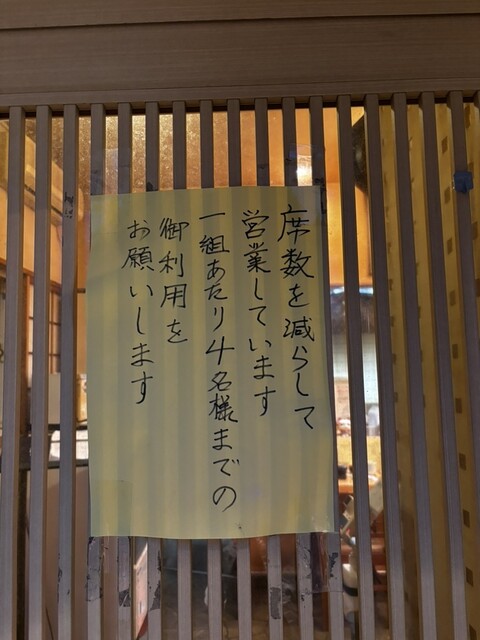 席数を減らして
営業しています
一組あたり4名様までの
御利用を
お願いします